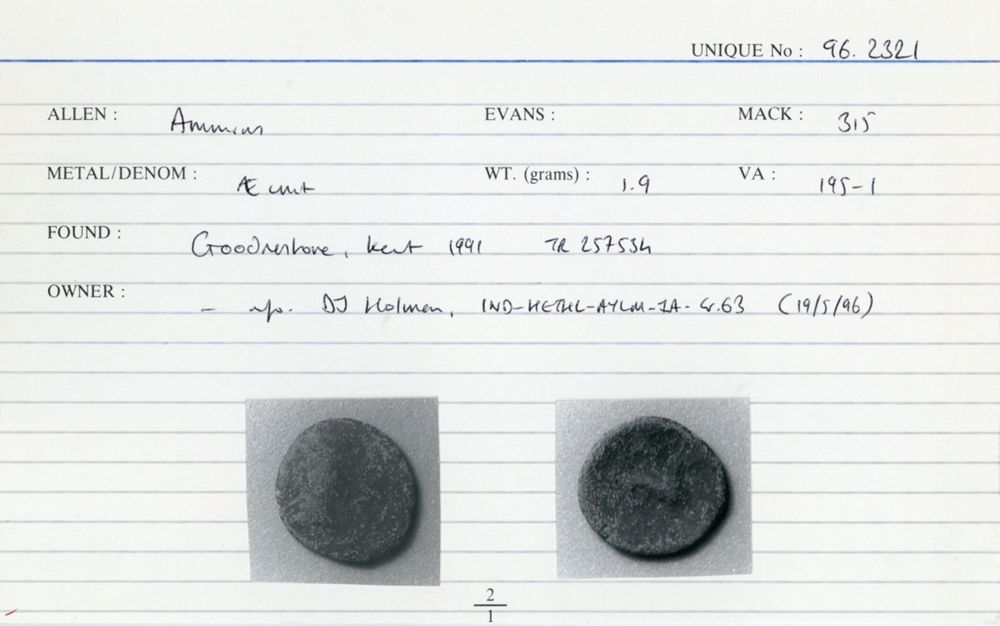 UNIQUE No : 96. 2321
ALLEN : Amminus EVANS : MACK : 315
METAL/DENOM : Æ unit WT. (grams) : 1.9 VA : 195-1
FOUND : Goodnestone, Kent 1991 TR 257534
OWNER : - DJ Holman, (19/5/96)
2
1